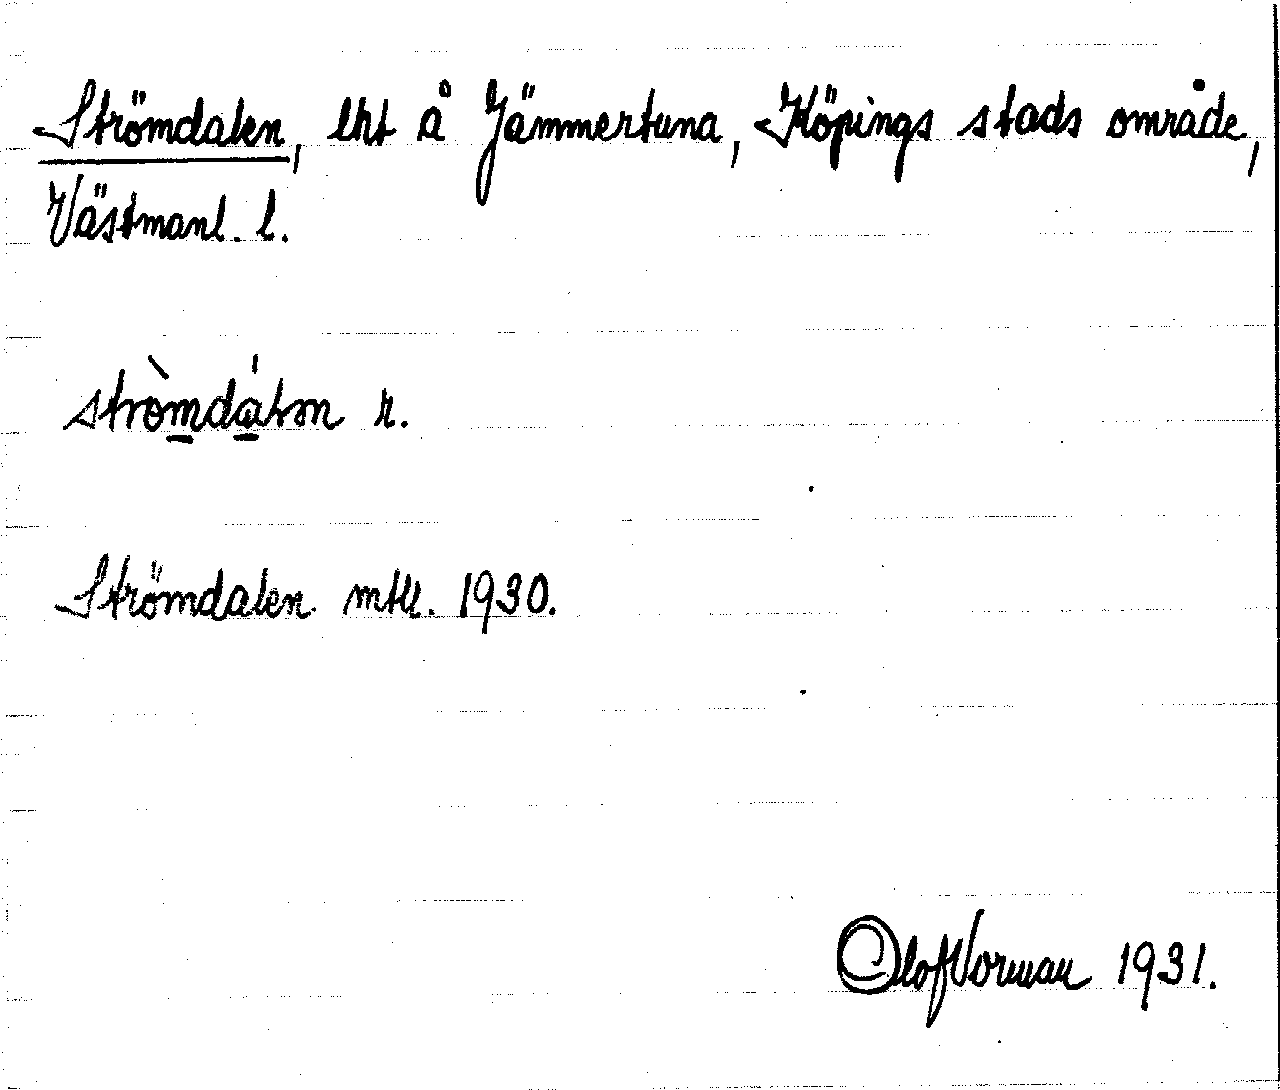 Strömdalen, lht å Jämmertuna, Köpings stads område,
Västmanl. l.
stròmdálən r.
Strömdalen mtll. 1930.
Olof Vorman 1931.